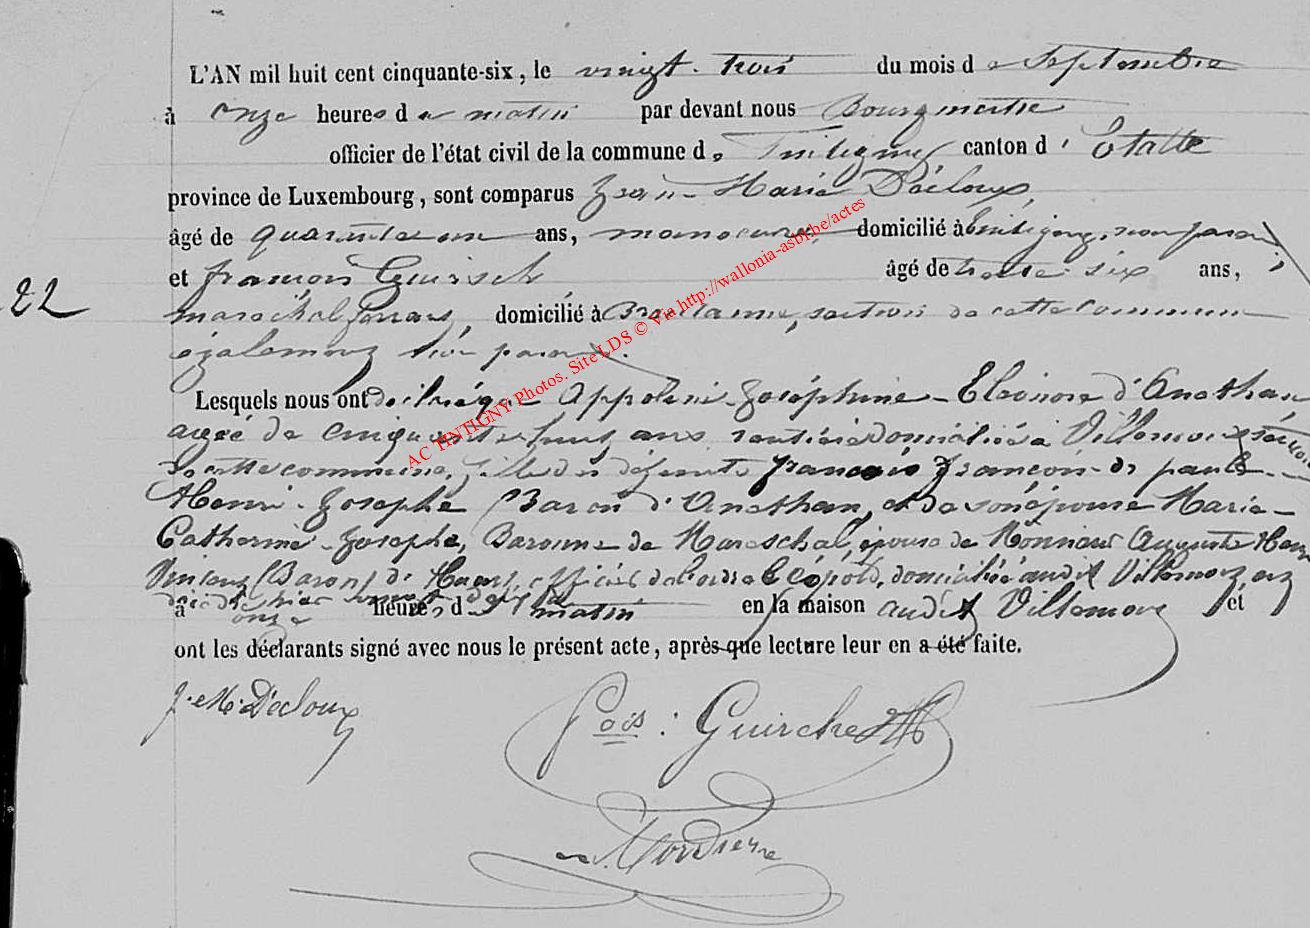 L'AN mil huit cent cinquante-six, le vingt-trois du mois de Septembre
à onze heures du matin par devant nous Bourgmestre
officier de l'état civil de la commune de Tintigny canton d'Etalle
province de Luxembourg, sont comparus Jean-Marie Décloux
âgé de quarante un ans, manoeuvre, domicilié à Tintigny, non parent,
et françois Guirsch âgé de trente six ans,
22
maréchal ferrant, domicilié à Breuvanne, section de cette commune
également non parent.
Lesquels nous ont déclaré que Appoline-Joséphine-Eléonore d'Anethan,
agée de cinquante huit ans rentière domiciliée à Villemont section
de cette commune, fille des défunts françois de paule
Henri-Joseph Baron d'Anethan, et de son épouse Marie-
Catherine-Josephe, Baronne de Mareschal, épouse de Monsieur Auguste
Baron de officier de l'ordre Léopold, domiciliée audit Villemont, est
décédée hier
à onze heures du matin en la maison audit Villemont et
ont les déclarants signé avec nous le présent acte, après que lecture leur en a été faite.
J. M. Décloux
Fçois : Guirche
AC TINTIGNY Photos. Site LDS © Via http://wallonia-asbl.be/actes